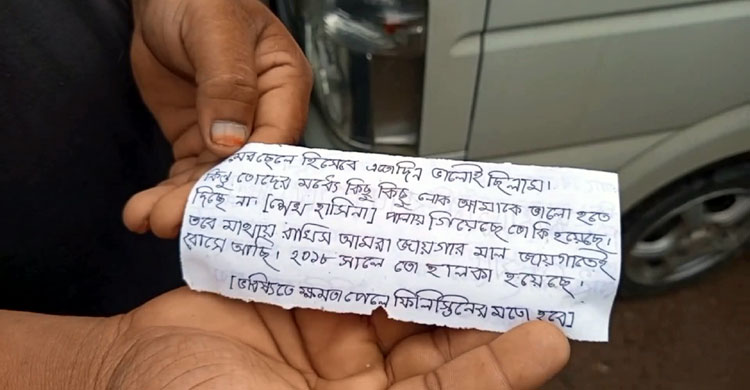 ছেলে হিসেবে এতোদিন ভালোই ছিলাম।
কিন্তু তোদের মর্ধ্যে কিছু কিছু লোক আমাকে ভালো হতে
দিছে না। [শেখ হাসিনা] পালায় গিয়েছে তো কি হয়েছে।
তবে মাথায় রাখিস আমরা জায়গার মাল জায়গাতেই
বোসে আছি। ২০১৮ সালে তো হালকা হয়েছে।
[ভবিষ্যতে ক্ষমতা পেলে ফিলিস্তিনের মতো হবে]